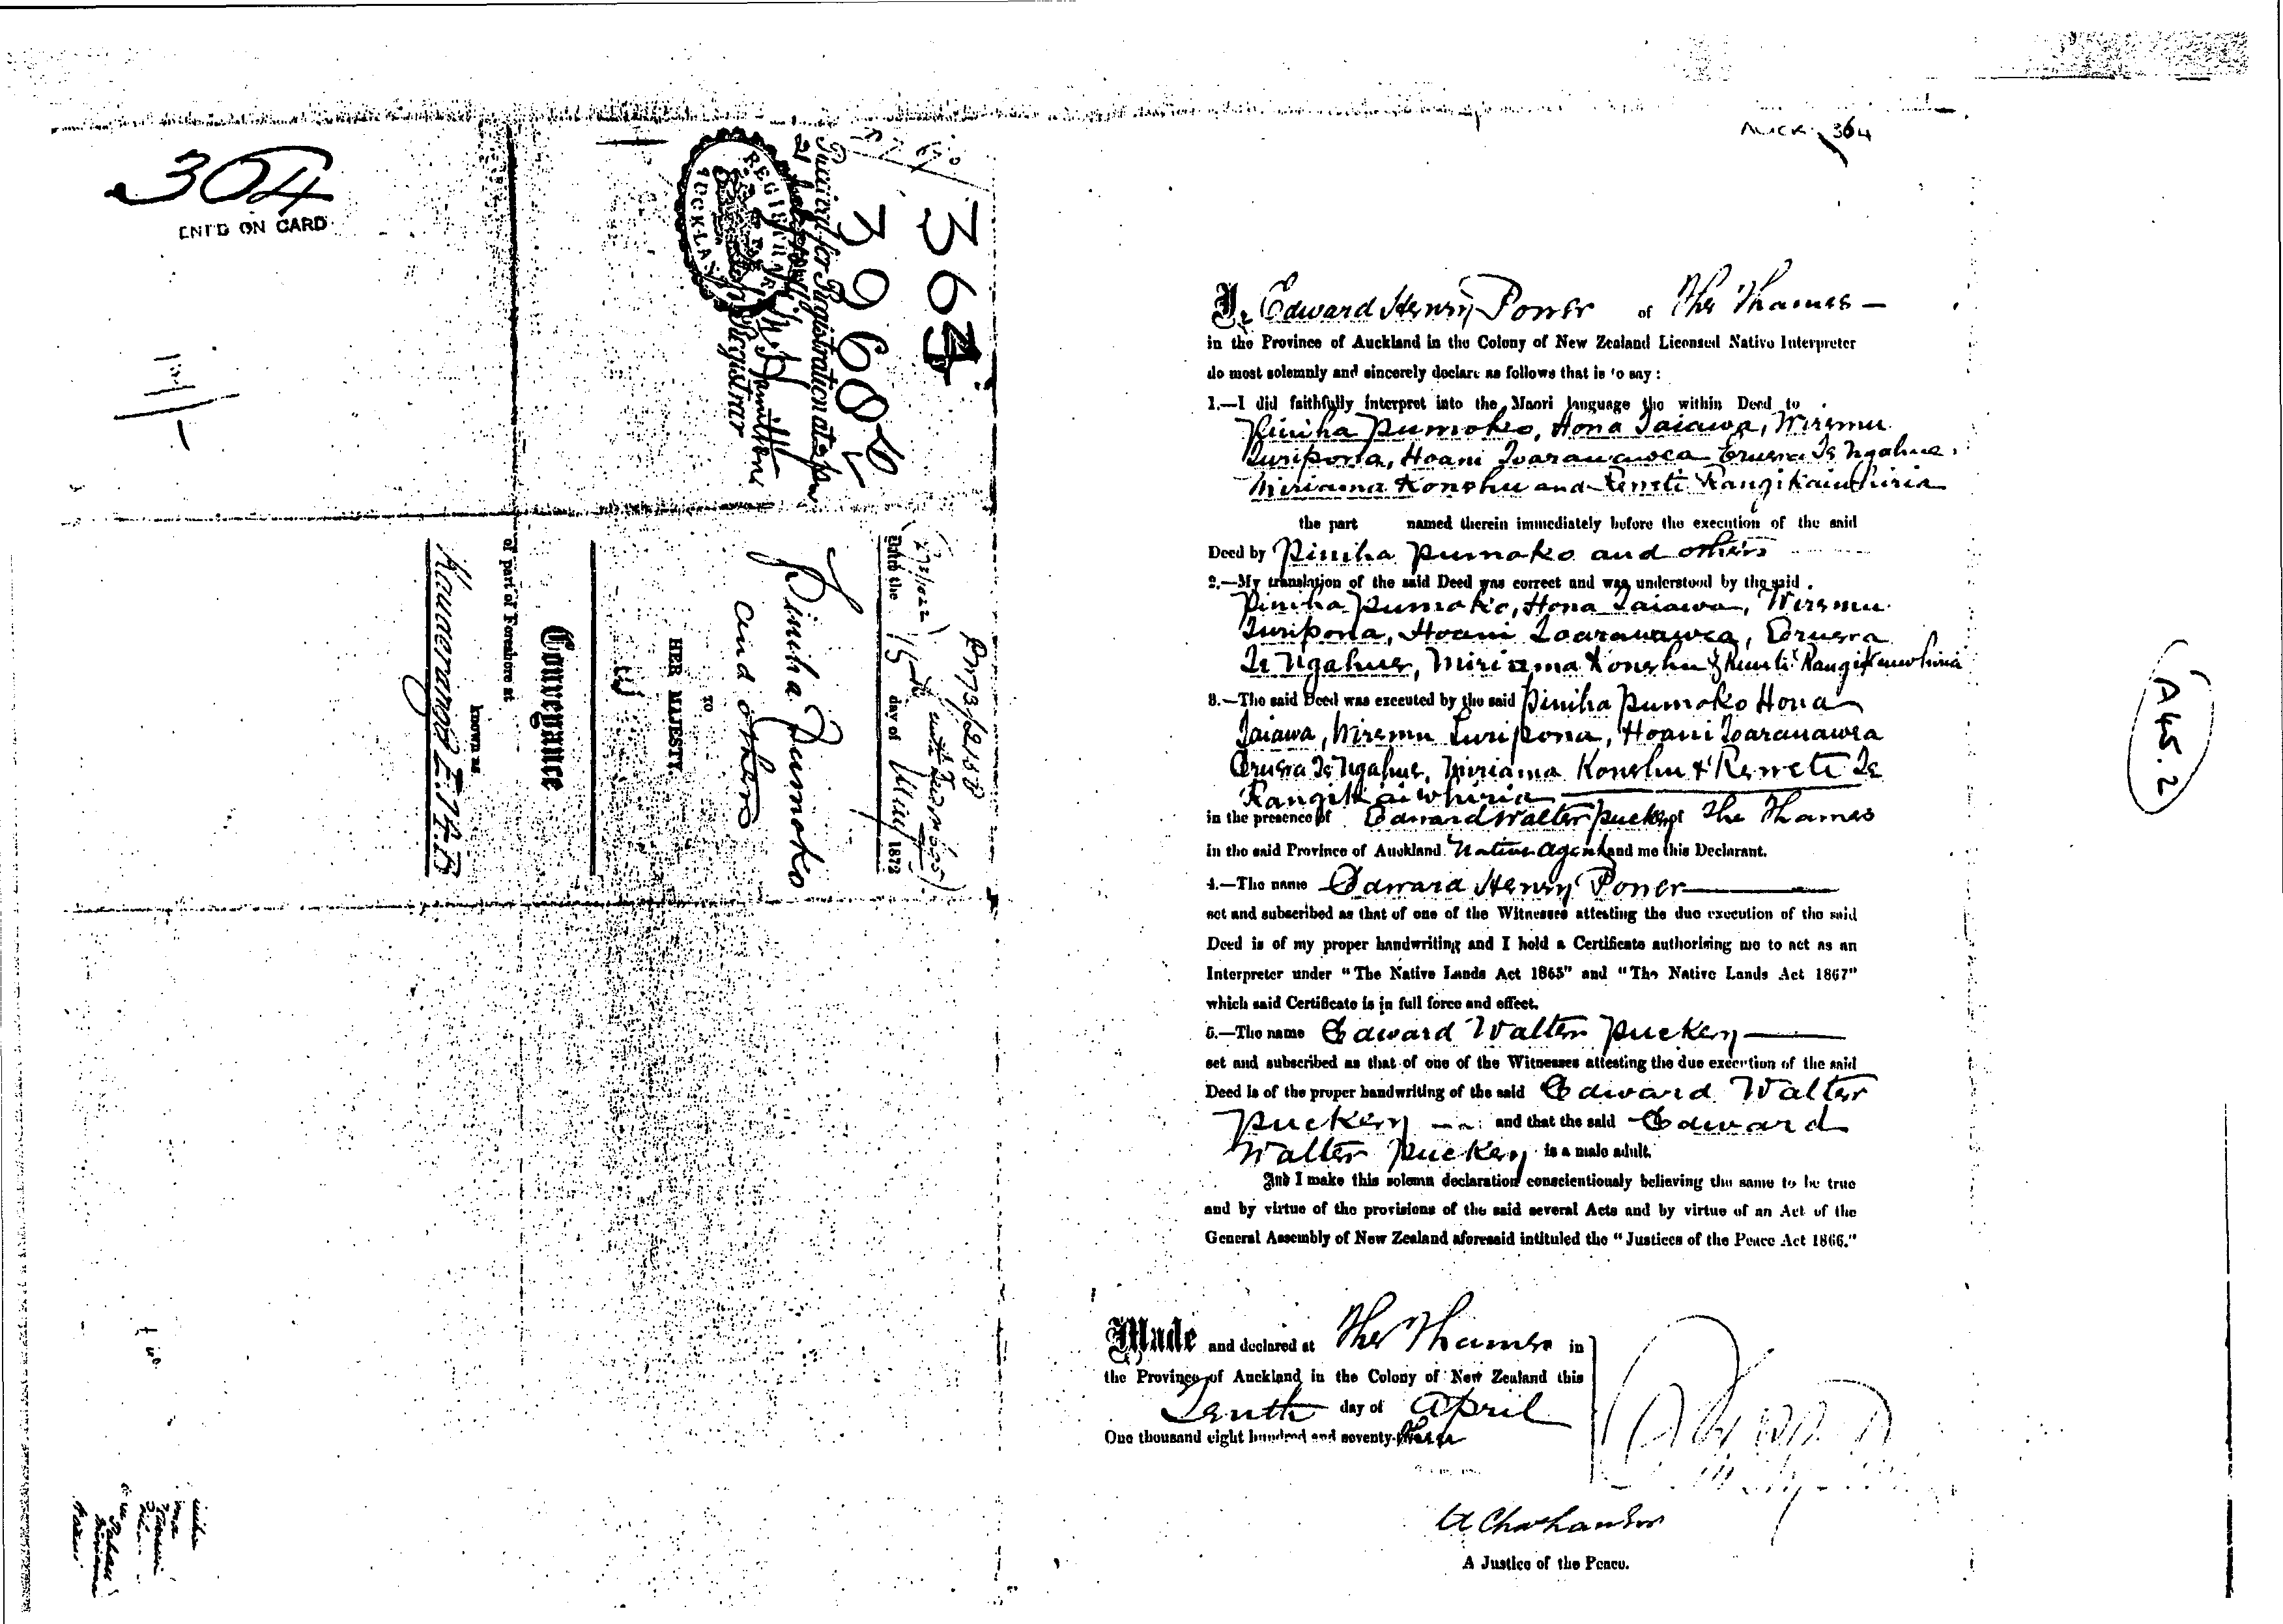 304
ENT'D ON CARD
364
39682
Received for Registration at
Registrar
REGISTRAR
AUCKLAND
Pr 73/2150
Dated the 15th day of May 1872
Piniha Pumoko
and others
TO
HER MAJESTY.
Conveyance
of part of Foreshore at
known as
Kauaeranga
AUCK 364
I, Edward Henry Power of The Thames —
in the Province of Auckland in the Colony of New Zealand Licensed Native Interpreter
do most solemnly and sincerely declare as follows that is to say:
1.—I did faithfully interpret into the Maori language the within Deed to
Piniha Pumoko, Hona Taiawa, Wiremu
Turipona, Hoani Toarauawea Eruera Te Ngahue,
Miriama Konehu and Remeti Rangikaiwhiria
the part named therein immediately before the execution of the said
Deed by Piniha Pumoko and others
2.—My translation of the said Deed was correct and was understood by the said
Piniha Pumoko, Hona Taiawa, Wiremu
Turipona, Hoani Toarauawea, Eruera
Te Ngahue, Miriama Konehu & Rangikaiwhiria
3.—The said Deed was executed by the said Piniha Pumoko Hona
Taiawa, Wiremu Turipona, Hoani Toarauawea
Eruera Te Ngahue, Miriama Konehu & Remeti Te
Rangikaiwhiria
in the presence of Edward Walter Puckey of The Thames
in the said Province of Auckland Native Agent and me this Declarant.
4.—The name Edward Henry Power
set and subscribed as that of one of the Witnesses attesting the due execution of the said
Deed is of my proper handwriting and I hold a Certificate authorising me to act as an
Interpreter under "The Native Lands Act 1865" and "The Native Lands Act 1867"
which said Certificate is in full force and effect.
5.—The name Edward Walter Puckey
set and subscribed as that of one of the Witnesses attesting the due execution of the said
Deed is of the proper handwriting of the said Edward Walter
Puckey and that the said Edward
Walter Puckey is a male adult.
And I make this solemn declaration conscientiously believing the same to be true
and by virtue of the provisions of the said several Acts and by virtue of an Act of the
General Assembly of New Zealand aforesaid intituled the "Justices of the Peace Act 1866."
Made and declared at The Thames in
the Province of Auckland in the Colony of New Zealand this
Tenth day of April
One thousand eight hundred and seventy-
A Justice of the Peace.
A45.2